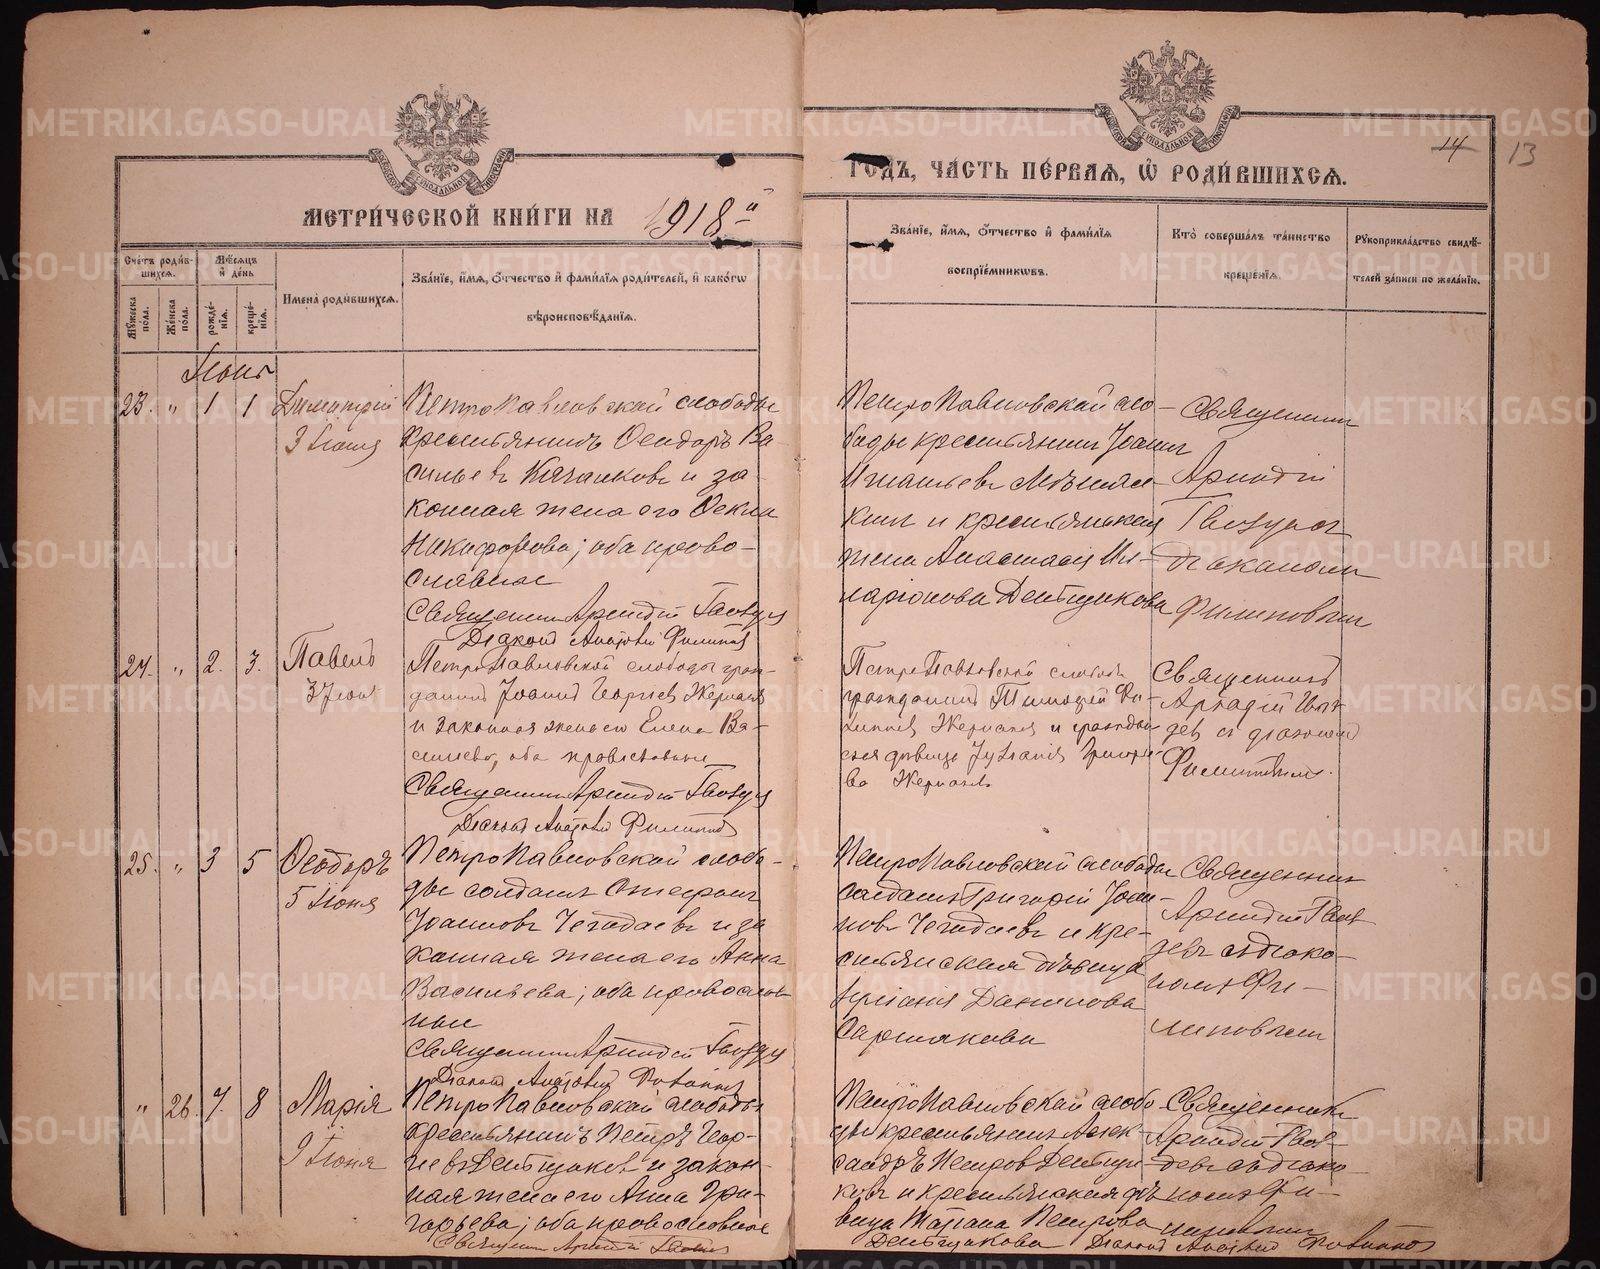 МЕТРИ́ЧЕСКОЙ КНИ́ГИ НА 1918 й
ГОДЪ, ЧА́СТЬ ПЕ́РВАЯ, Ѽ РОДИ́ВШИХСЯ.
14 13
Сче́тъ роди́в-
шихся.
Мѣ́сяцъ
и҆ де́нь
Мꙋ́жеска по́ла.
Же́нска по́ла.
рожде́-
нїя.
креще́-
нїя.
И҆мена̀ роди́вшихся.
Зва́нїе, и҆́мя, ѻ҆́тчество и҆ фами́лїя роди́телей, и҆ како́гѡ
вѣроисповѣ́данїя.
Зва́нїе, и҆́мя, ѻ҆́тчество и҆ фами́лїя
воспрїе́мникѡвъ.
Кто̀ соверша́лъ та́инство
креще́нїя.
Рꙋкоприкла́дство свидѣ́-
телей за́писи по жела́нїю.
Іюнь
23. " 1 1 Димитрій
3 Іюня
Петропавловской слободы
крестьянинъ Ѳеодоръ Ва
сильевъ и за
конная жена его Ѳекла
Никифорова; оба право-
славные
Священникъ Аркадій Гвоздев
Діаконъ Филиппов
Петропавловской сло-
боды крестьянин Іоанн
Игнатьевъ
кин и крестьянская
жена Анастасія Ил-
ларіонова Деньщикова
Священник
Аркадій
Гвоздев
діаконом
Филиповым
24. " 2. 3. Павелъ
3 Іюня
Петропавловской слободы граж-
данинъ Іоаннъ Георгіев
и законная жена его Елена Ва-
сильева, оба православные
Священник Аркадій Гвоздев
Діаконъ Филиппов
Петропавловской слободы
гражданинъ Тимоѳей Фи-
липпов и граждан
ская дѣвица Григорье
ва
Священникъ
Аркадій Гвоз-
дев с діакономъ
Филипповым.
25. " 3 5 Ѳеодоръ
5 Іюня
Петропавловской слобо-
ды солдатъ Стефанъ
Іоанновъ Чегодаевъ и за
конная жена его Анна
Васильева; оба православ
ные
Священник Аркадій Гвоздев
Діаконъ Филиппов
Петропавловской слободы
солдатъ Григорій Іоан-
новъ Чегодаевъ и кре-
стьянская дѣвица
Данилова
Священник
Аркадій Гвоз
девъ съ діако-
номъ Фи-
липовым
" 26. 7. 8 Марія
9 Іюня
Петропавловской слободы
крестьянинъ Петръ Геор-
гіевъ Деньщиковъ и закон-
ная жена его Анна Гри-
горьева; оба православные
Священник Аркадій Гвоздев
Петропавловской слобо
ды крестьянин Алек-
сандръ Петров Деньщи-
ковъ и крестьянская дѣ
вица Татіана Петрова
Деньщикова
Священникъ
Аркадій Гвоз-
девъ съ діако-
номъ Фи-
липовым
Діаконъ Филиппов